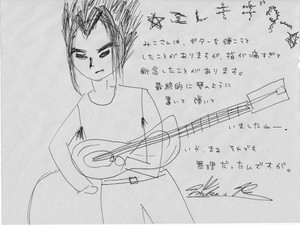 ☆こしぎ…☆
みこさんは、ギターを弾こうと
したことがありますが、指が痛すぎて
断念したことがあります。
最終的に琴のように
置いて弾いて
いましたねー。
いや、まぁ それでも
無理だったんですが。